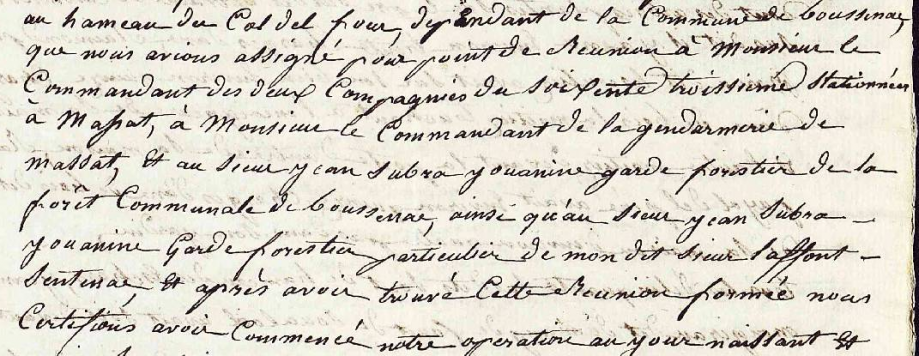 au hameau du Col del four, dependant de la Commune de boussenac,
que nous avions assigné pour point de Reunion à Monsieur le
Commandant des deux Compagnies du Soixente troissieme Stationnées
à Massat, à Monsieur le Commandant de la gendarmerie de
massat, Et au Sieur yean Subra youanine garde forestier de la
forêt Communale de boussenac, ainsi qu'au Sieur yean Subra
youanine Garde forestier particulier de mon dit Sieur Laffont
Sentenac Et après avoir trouvé Cette Reunion formée nous
Certifions avoir Commencé notre operation au your naissant Et